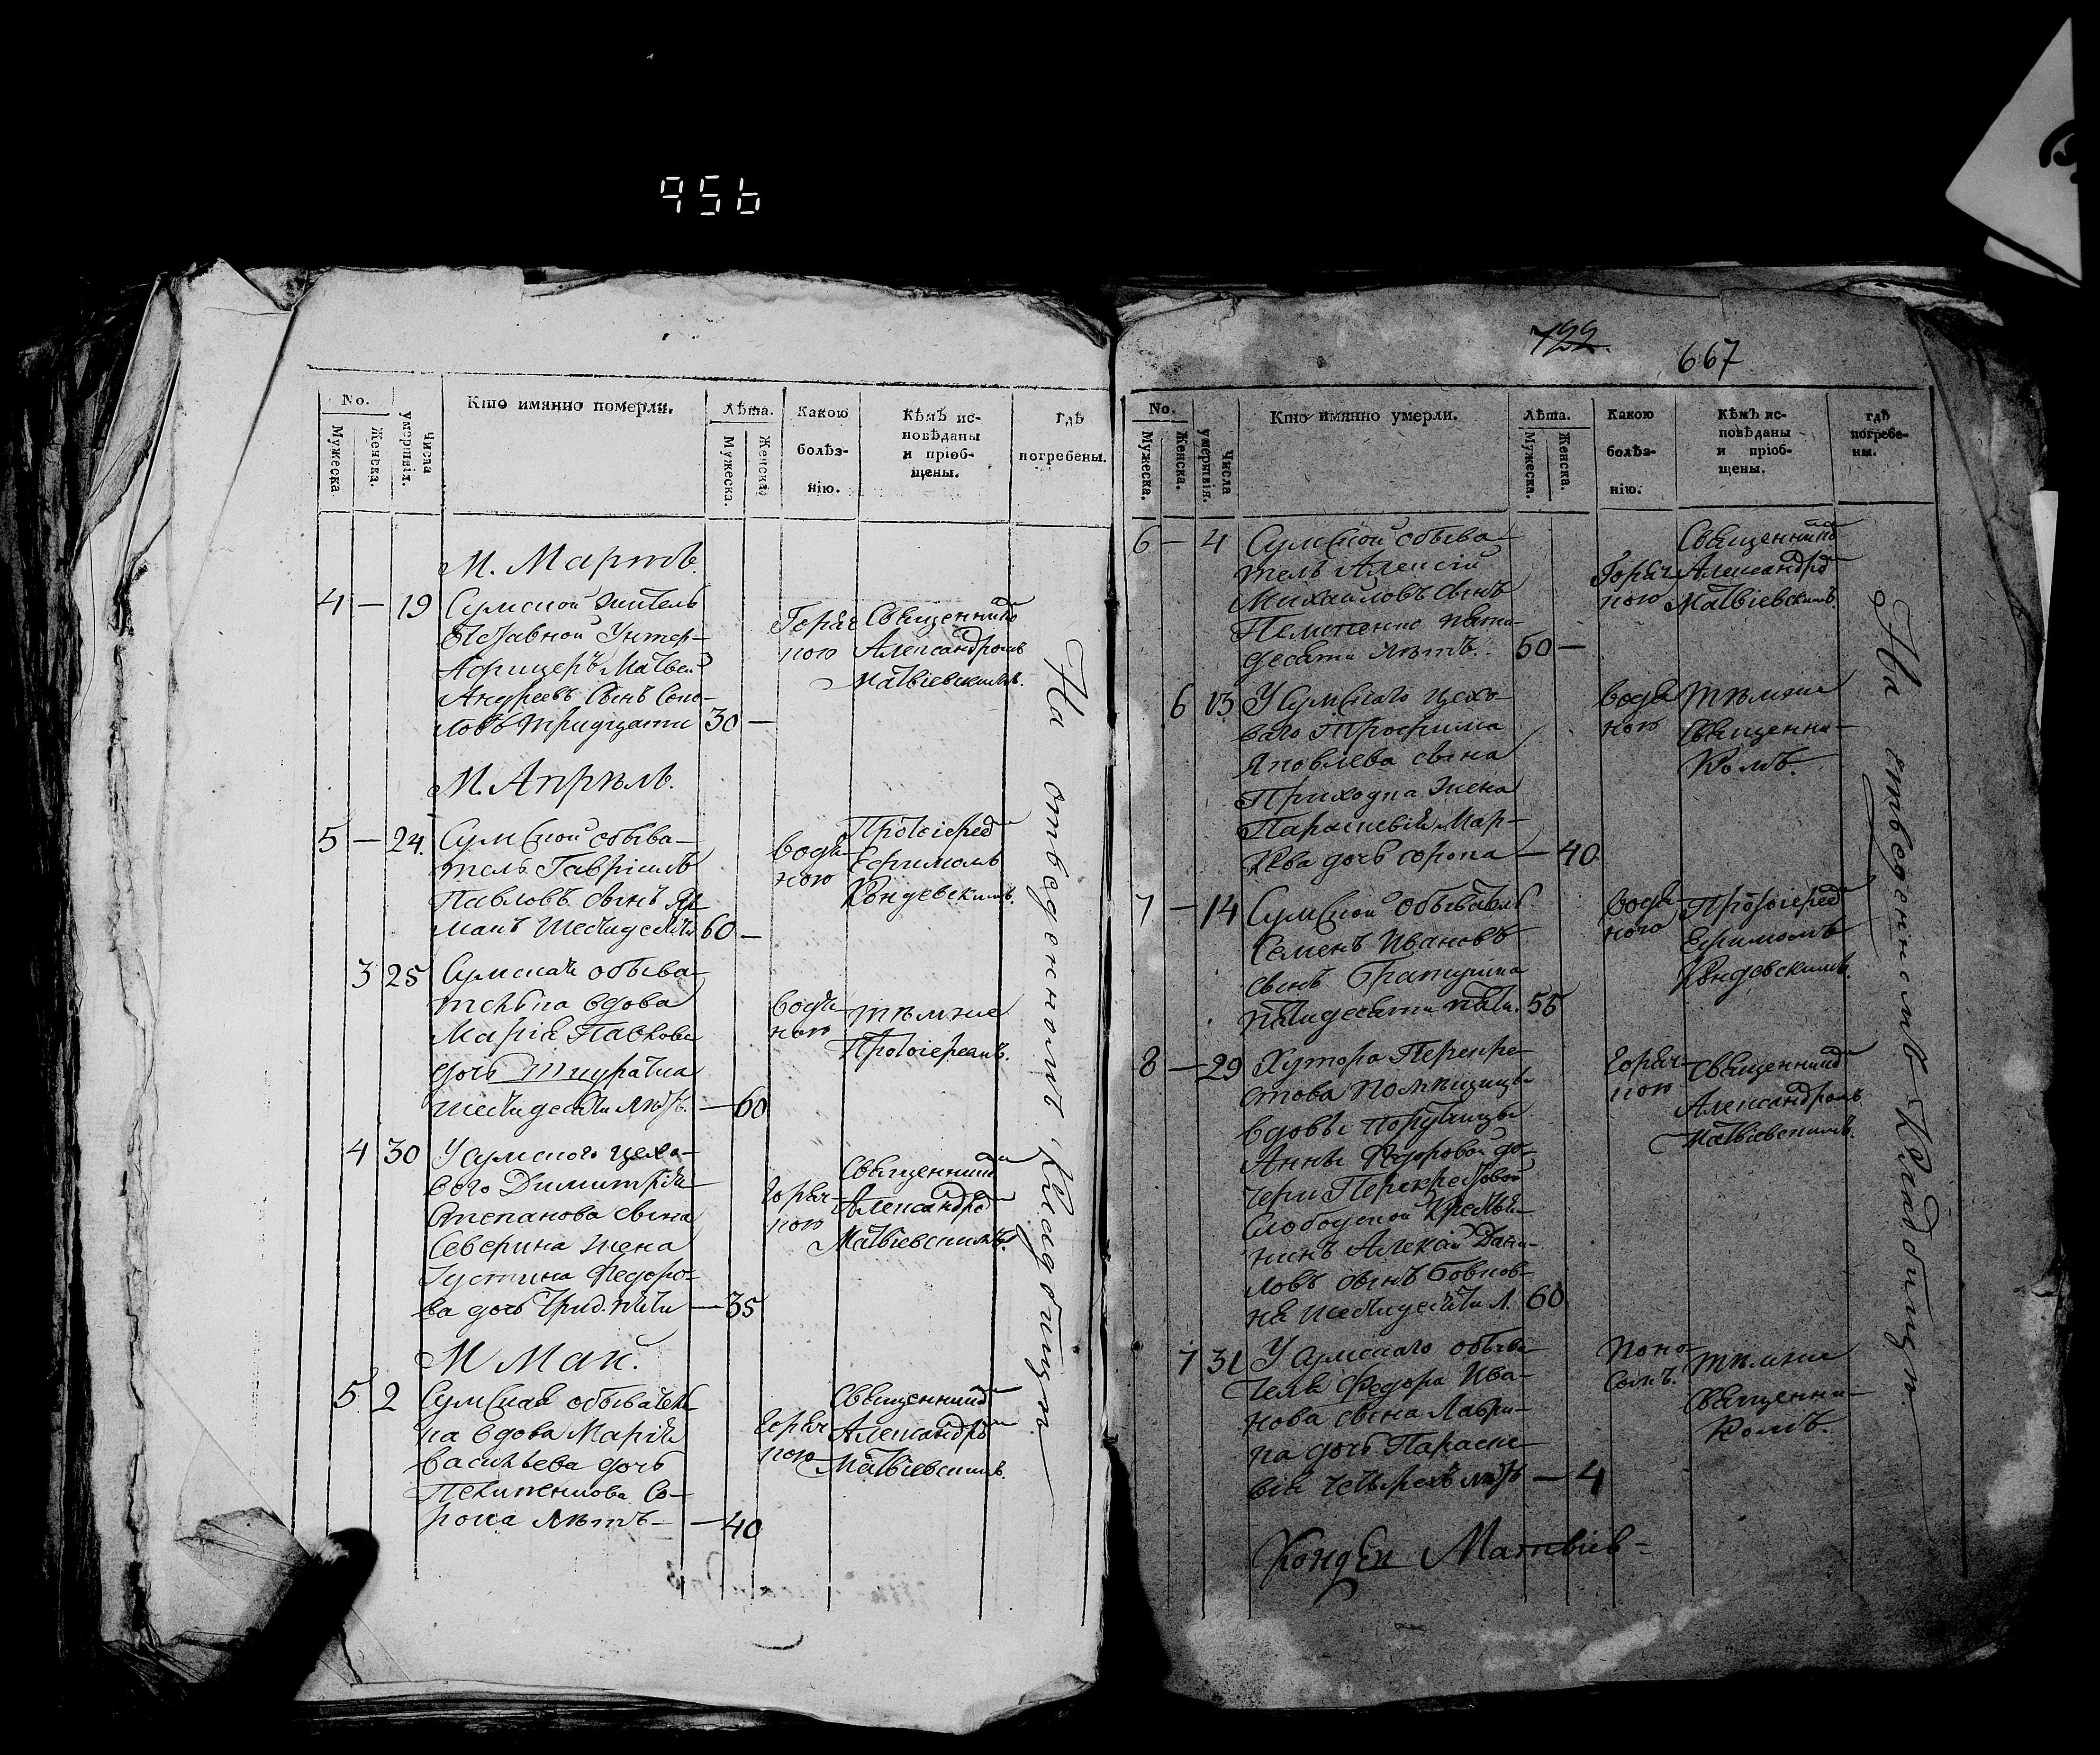 956
No.
Мужеска
Женска.
Числа умертвія.
Кто имянно померли.
Лѣта.
Мужеска.
Женска
Какою болѣз-
нію.
Кѣмъ ис-
повѣданы
и пріоб-
щены.
гдѣ
погребены.
М. Мартъ.
4 — 19 Сумской житель
Унтер-
Афицеръ Матвей
Андреевъ сынъ Соко-
ловъ тридцати 30 —
Горяч
кою
Священником
Александромъ
Матвіевскимъ.
М. Апрѣль.
5 — 24. Сумской обыва-
тель Гавріилъ
Павловъ сынъ
шестидесяти 60 —
водя-
ною
Протоіерее
Ефимомъ
Кондевскимъ.
3 25 Сумская обыва
телька вдова
Марія Павлова
дочь
шестидесяти лѣтъ. — 60
водя
ною
тѣмже
Протоіереемъ.
4 30 У сумского цехо-
вого Димитрія
Степанова сына
Северина жена
Іустина Федоро-
ва дочь трид. пяти — 35
горяч-
кою
Священником
Александро
Матвіевскимъ.
М Май.
5 2 Сумская обывател
ка вдова Марія
Васильева дочь
со-
рока лѣтъ — 40
горяч
кою
Священником
Александро
Матвіевскимъ.
На отведенномъ Кладбищѣ
722.
667
No.
Мужеска.
Женска.
Числа умертвія.
Кто имянно умерли.
Лѣта.
Мужеска.
Женска.
Какою
болѣз-
нію.
Кѣмъ ис-
повѣданы
и пріоб-
щены.
гдѣ
погребе-
ны.
6 — 4 Сумской обыва-
тель Алексій
Михайловъ сынъ
пяти-
десяти лѣтъ. 50 —
Горяч
кою
Священником
Александро
Матвіевскимъ.
6 13 У Сумскаго цехо-
ваго Трофима
Яковлева сына
Приходка жена
Параскевія Мар-
кова дочь сорока — 40
водя
ною
тѣмже
священни-
комъ.
7 — 14 Сумской обыватель
Семенъ Ивановъ
сынъ
пятидесяти пяти. 55
водя
ною
Протоіерее
Ефимомъ
Кондевскимъ.
8 — 29 Хутора Перекре-
стова помѣщицы
вдовы порутчицы
Анны Федоровой до-
чери Перекрестовой
слободской крестья-
нинъ Алексій Дани-
ловъ сынъ
шестидесяти л. 60
горяч-
кою
священником
Александромъ
Матвіевскимъ.
7 31 У сумскаго обыва
теля Федора Ива-
нова сына Лаври-
ка дочь Параске
вія четырехъ лѣтъ — 4
поно-
сомъ.
тѣмже
священни-
комъ.
На отведенномъ Кладбищѣ
Матвіев-